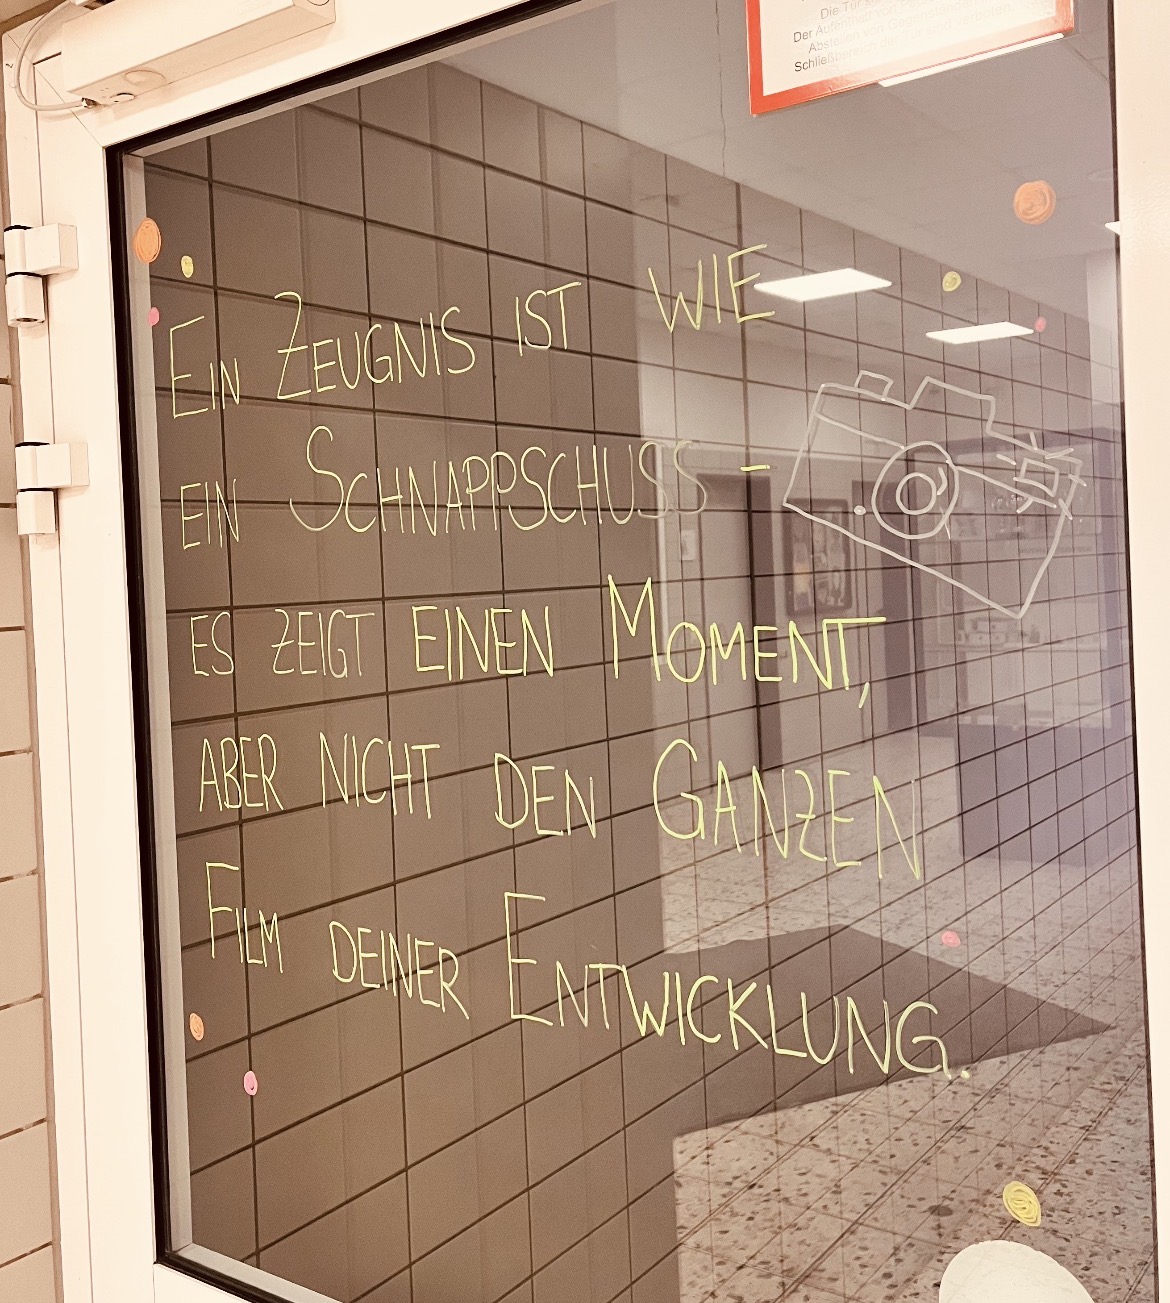 Die Tür
Der Aufenthalt vor
Abstellen von Gegenständen
Schließbereich der Tür sind verboten.
EIN ZEUGNIS IST WIE
EIN SCHNAPPSCHUSS -
ES ZEIGT EINEN MOMENT,
ABER NICHT DEN GANZEN
FILM DEINER ENTWICKLUNG.